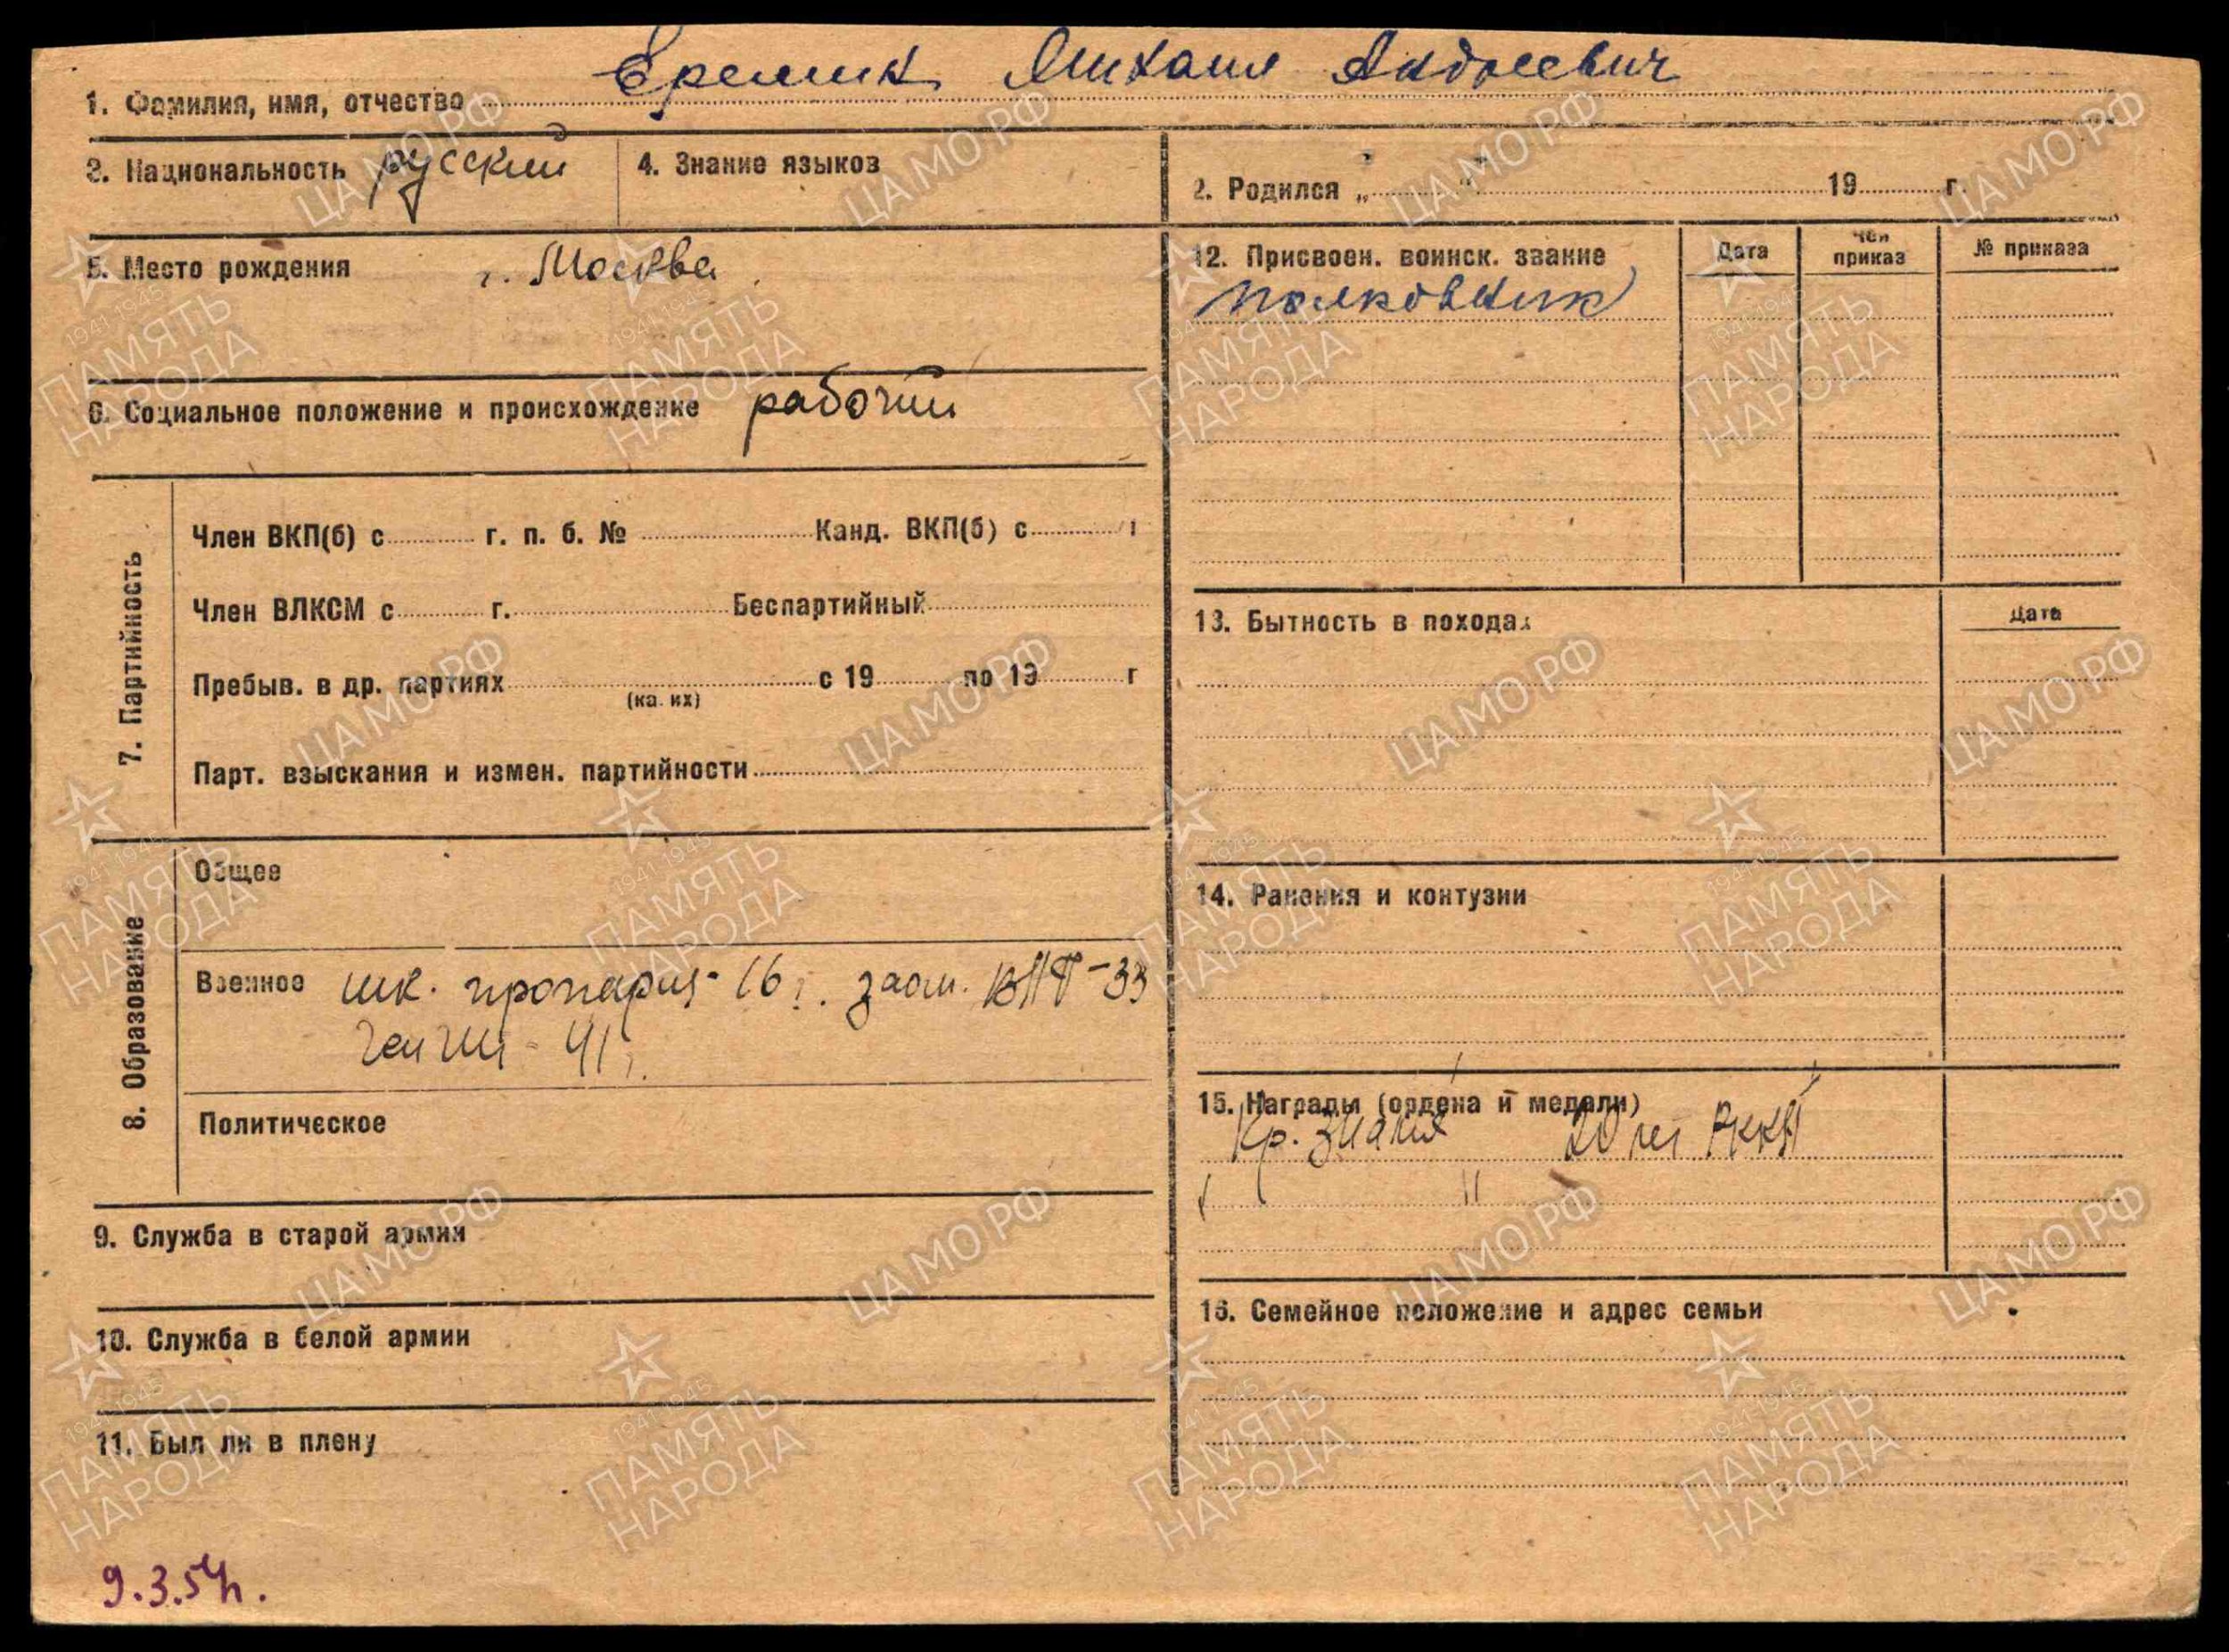 1. Фамилия, имя, отчество Еремин Михаил
3. Национальность русский
4. Знание языков
2. Родился „ " 19 г.
5. Место рождения г. Москва
6. Социальное положение и происхождение рабочий
7. Партийность
Член ВКП(б) с г. п. б. № Канд. ВКП(б) с г
Член ВЛКСМ с г. Беспартийный
Пребыв. в др. партиях с 19 по 19 г
(каких)
Парт. взыскания и измен. партийности
8. Образование
Общее
Военное шк. прапорщ- 16 г. заоч. ВАФ-33
ГенШ - 41 г.
Политическое
9. Служба в старой армии
10. Служба в белой армии
11. Был ли в плену
9.3.54г.
12. Присвоен. воинск. звание Дата Чей приказ № приказа
полковник
13. Бытность в походах Дата
14. Ранения и контузии
15. Награды (ордена и медали)
Кр. Знамя 20 лет РККА
"
16. Семейное положение и адрес семьи
ЦАМО.РФ
1941-1945
ПАМЯТЬ
НАРОДА